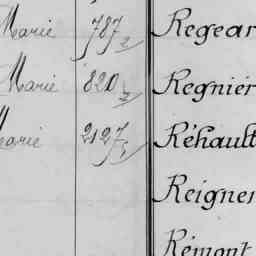 Marie 787 2 Regear
Marie 820 Regnier
Marie 2127 Réhault
Reignes
Rémont